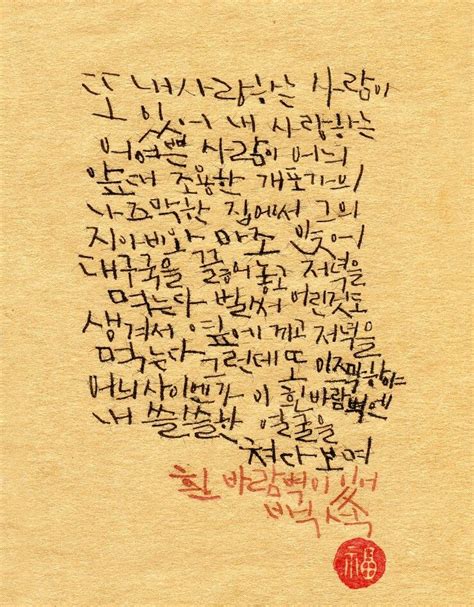 또 내 사랑하는 사람이
또 있어 내 사랑하는
어여쁜 사람이 어늬
앞대 조용한 개포가의
나즈막한 집에서 그의
지아비와 마조 앉어
대구국을 끓여놓고 저녁을
먹는다 벌써 어린것도
생겨서 옆에 끼고 저녁을
먹는다 그런데 또 이즈막하야
어늬 사이엔가 이 흰 바람벽엔
내 쓸쓸한 얼굴을
쳐다보며
흰 바람벽이 있어
백석
福